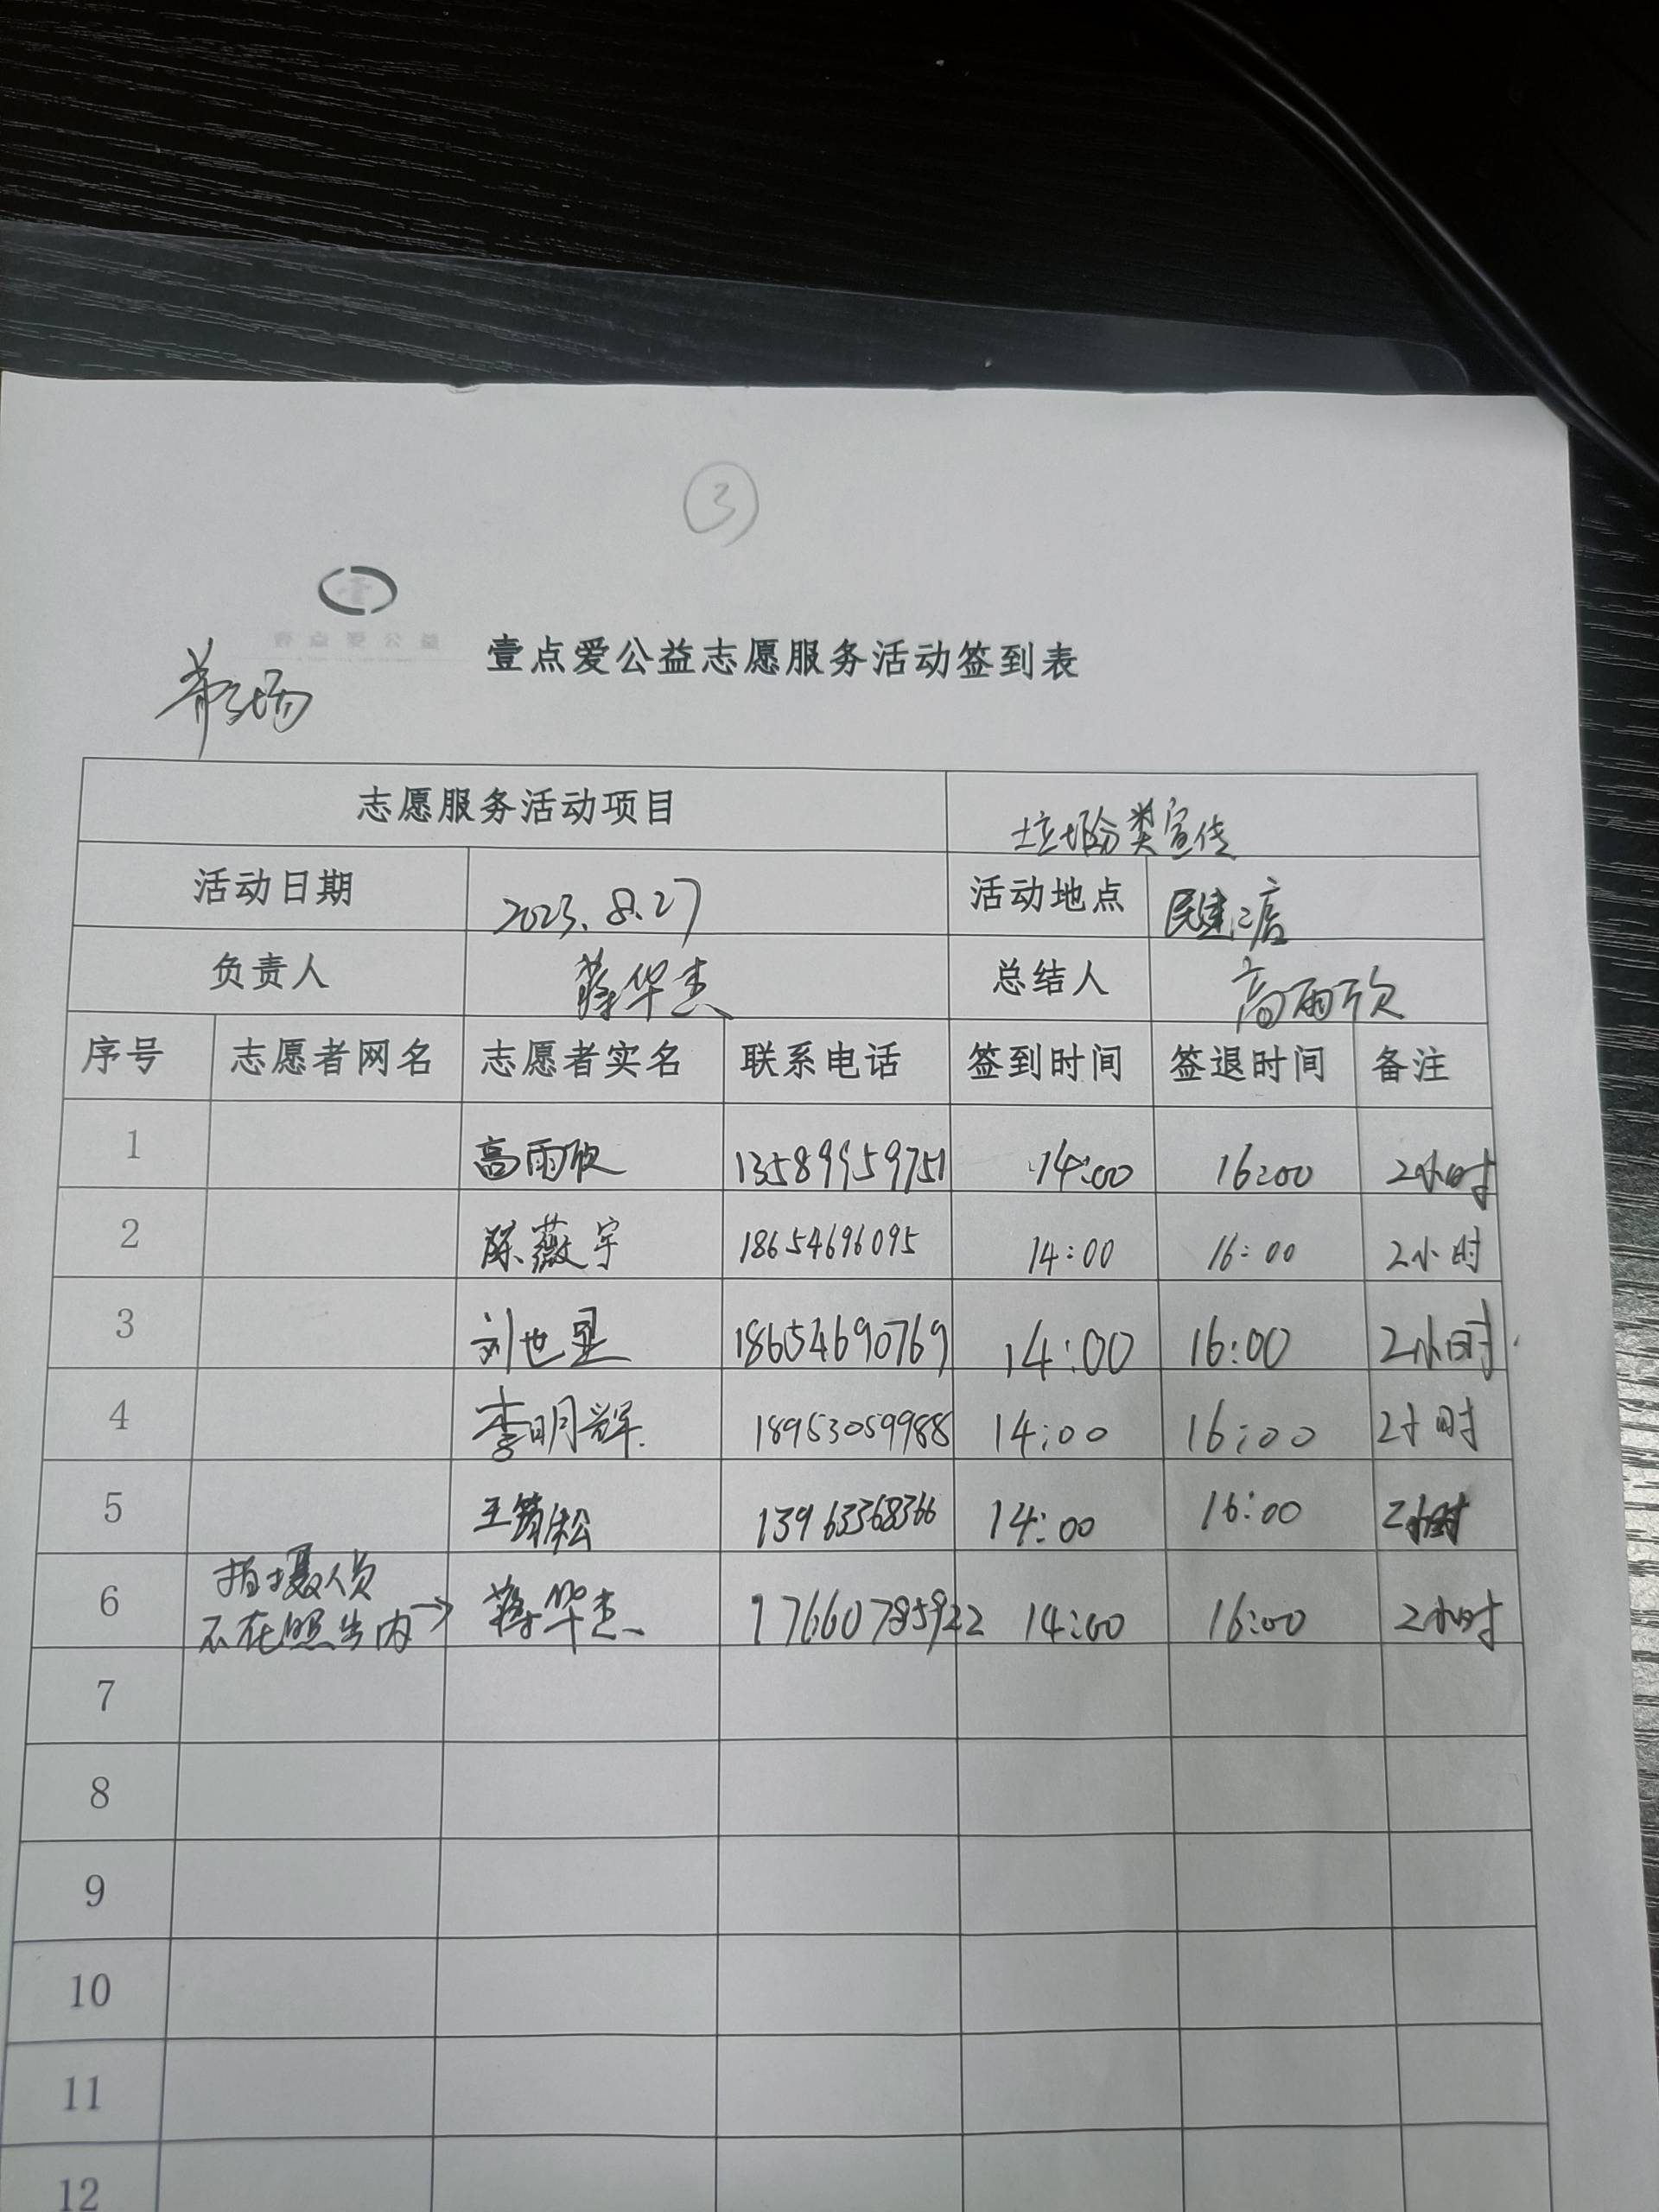 ③
壹点爱公益志愿服务活动签到表
志愿服务活动项目 垃圾分类宣传
活动日期 2023.8.27 活动地点 民建二店
负责人 蒋华杰 总结人 高雨欣
序号 志愿者网名 志愿者实名 联系电话 签到时间 签退时间 备注
1 高雨欣 13589959751 14:00 16:00 2小时
2 陈薇宇 18654696095 14:00 16:00 2小时
3 刘世 18654690769 14:00 16:00 2小时
4 李明辉 18953059988 14:00 16:00 2小时
5 王 松 13963368366 14:00 16:00 2小时
6 拍摄人员 不在照片内→ 蒋华杰 17660785922 14:00 16:00 2小时
7
8
9
10
11
12